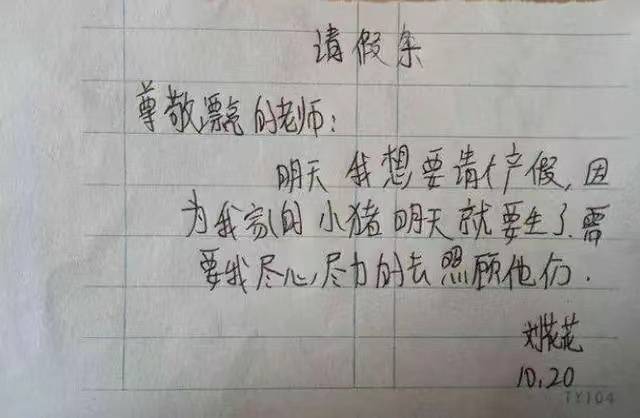 请假条
尊敬漂亮的老师:
明天我想要请产假,因
为我家的小猪明天就要生了.需
要我尽心,尽力的去照顾他们.
刘花花
10.20
TY104